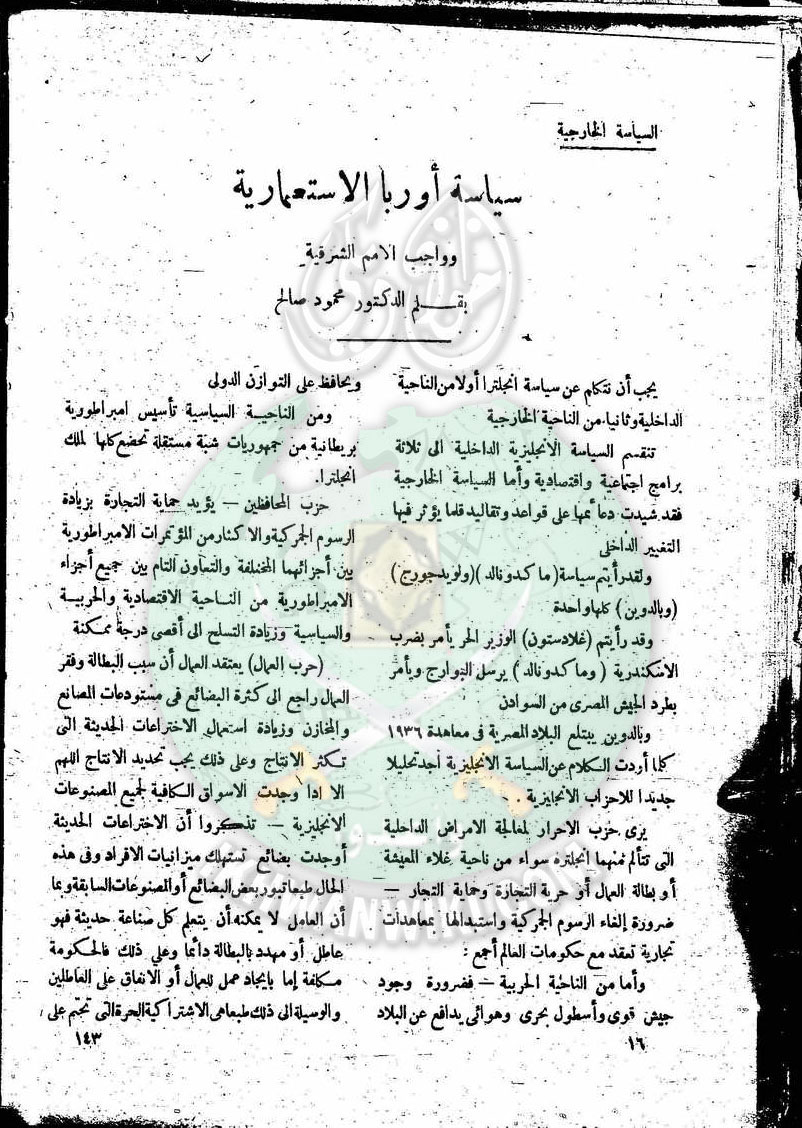 السياسة الخارجية
سياسة أوربا الاستعمارية
وواجب الامم الشرقية
بقلم الدكتور محمود صالح
يجب أن نتكلم عن سياسة انجلترا أولا من الناحية
الداخلية وثانيا من الناحية الخارجية
تنقسم السياسة الانجليزية الداخلية الى ثلاثة
برامج اجتماعية واقتصادية وأما السياسة الخارجية
فقد شيدت دعائمها على قواعد وتقاليد قلما يؤثر فيها
التغيير الداخلى
ولقد رأيتم سياسة (ماكدونالد) (ولويد جورج)
(وبالدوين) كلها واحدة
وقد رأيتم (غلادستون) الوزير الحر يأمر بضرب
الاسكندرية (وماكدونالد) يرسل البوارج ويأمر
بطرد الجيش المصرى من السوادن
وبالدوين يبتلع البلاد المصرية فى معاهدة ١٩٣٦
كلما أردت الكلام عن السياسة الانجليزية أجد تحليلا
جديدا للاحزاب الانجليزية .
يرى حزب الاحرار لمعالجة الامراض الداخلية
التى تتألم منهما انجلتره سواء من ناحية غلاء المعيشة
أو بطالة العمال أو حرية التجارة وحماية التجار —
ضرورة إلغاء الرسوم الجمركية واستبدالها بمعاهدات
تجارية تعقد مع حكومات العالم أجمع :
وأما من الناحية الحربية — فضرورة وجود
جيش قوى وأسطول بحرى وهوائى يدافع عن البلاد
١٦
ويحافظ على التوازن الدولى
ومن الناحية السياسية تأسيس امبراطورية
بريطانية من جمهوريات شبة مستقلة تخضع كلها لملك
انجلترا.
حزب المحافظين — يؤيد حماية التجارة بزيادة
الرسوم الجمركية والاكثار من المؤتمرات الامبراطورية
بين أجزائهما المختلفة والتعاون التام بين جميع أجزاء
الامبراطورية من الناحية الاقتصادية والحربية
والسياسية وزيادة التسلح الى أقصى درجة ممكنة
(حرب العمال) يعتقد العمال أن سبب البطالة وفقر
العمال راجع الى كثرة البضائع فى مستودعات المصانع
والمخازن وزيادة استعمال الاختراعات الحديثة التى
تكثر الانتاج وعلى ذلك يجب تحديد الانتاج اللهم
الا اذا وجدت الاسواق الكافية لجميع المصنوعات
الانجليزية — تذكروا أن الاختراعات الحديثة
أوجدت بضائع تستهلك ميزانيات الافراد وفى هذه
الحال طبعا تبور بعض البضائع أو المصنوعات السابقة وبما
أن العامل لا يمكنه أن يتعلم كل صناعة حديثة فهو
عاطل أو مهدد بالبطالة دائما وعلي ذلك فالحكومة
مكلفة إما بايجاد عمل للعمال أو الانفاق على العاطلين
والوسيلة الى ذلك طبعا هى الاشتراكية الحرة التى تحتم على
١٤٣